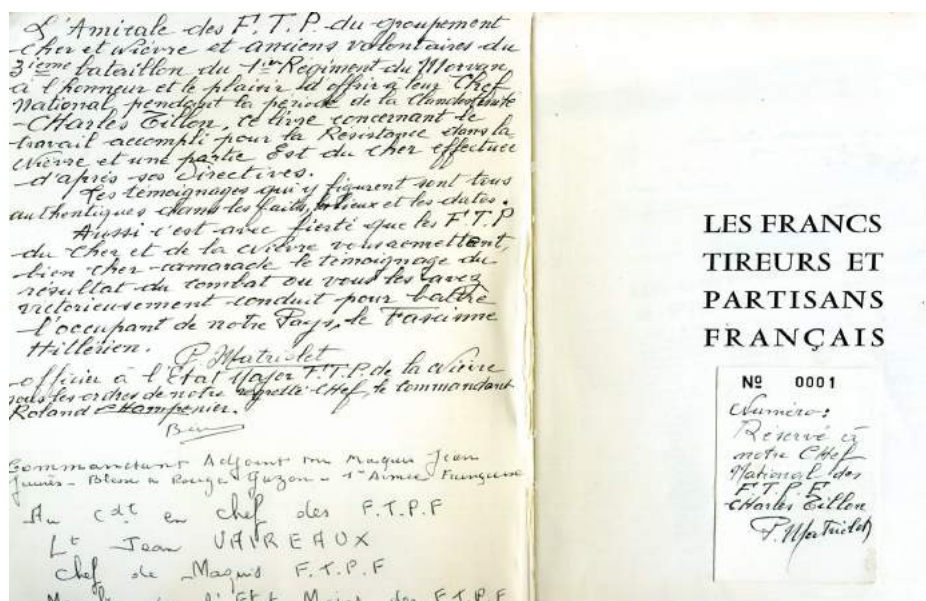 L'Amicale des F.T.P. du groupement
Cher et Nièvre et anciens volontaires du
3ième bataillon du 1er Régiment du Morvan,
a l'honneur et le plaisir d'offrir à leur Chef
National pendant la période de la Clandestinité
-CHarles Tillon, ce livre concernant le
travail accompli pour la Résistance dans la
Nièvre et une partie Est du Cher effectuée
d'après ses Directives.
Les témoignages qui y figurent sont tous
authentiques dans les faits, lieux et les dates.
Aussi c'est avec fierté que les F.T.P
du Cher et de la Nièvre vous remettent,
bien cher camarade le témoignage du
résultat du combat ou vous les avez
victorieusement conduit pour battre
l'occupant de notre Pays, le Fascisme
Hitlérien.
P. Matriolet
officier à l'État Major F.T.P. de la Nièvre
sous les ordres de notre regretté CHef, le commandant
Roland CHampenier.
Commandant Adjoint du Maquis Jean
Jaurès - Blessé à Rouge Gazon - 1re Armée Française
Au Cdt en chef des F.T.P.F
Lt Jean VAIREAUX
Chef de Maquis F.T.P.F
à l'Etat Major des F.T.P.F
LES FRANCS
TIREURS ET
PARTISANS
FRANÇAIS
No 0001
Numéro:
Réservé à
notre CHef
National des
F.T.P.F
CHarles Tillon
P. Matriolet